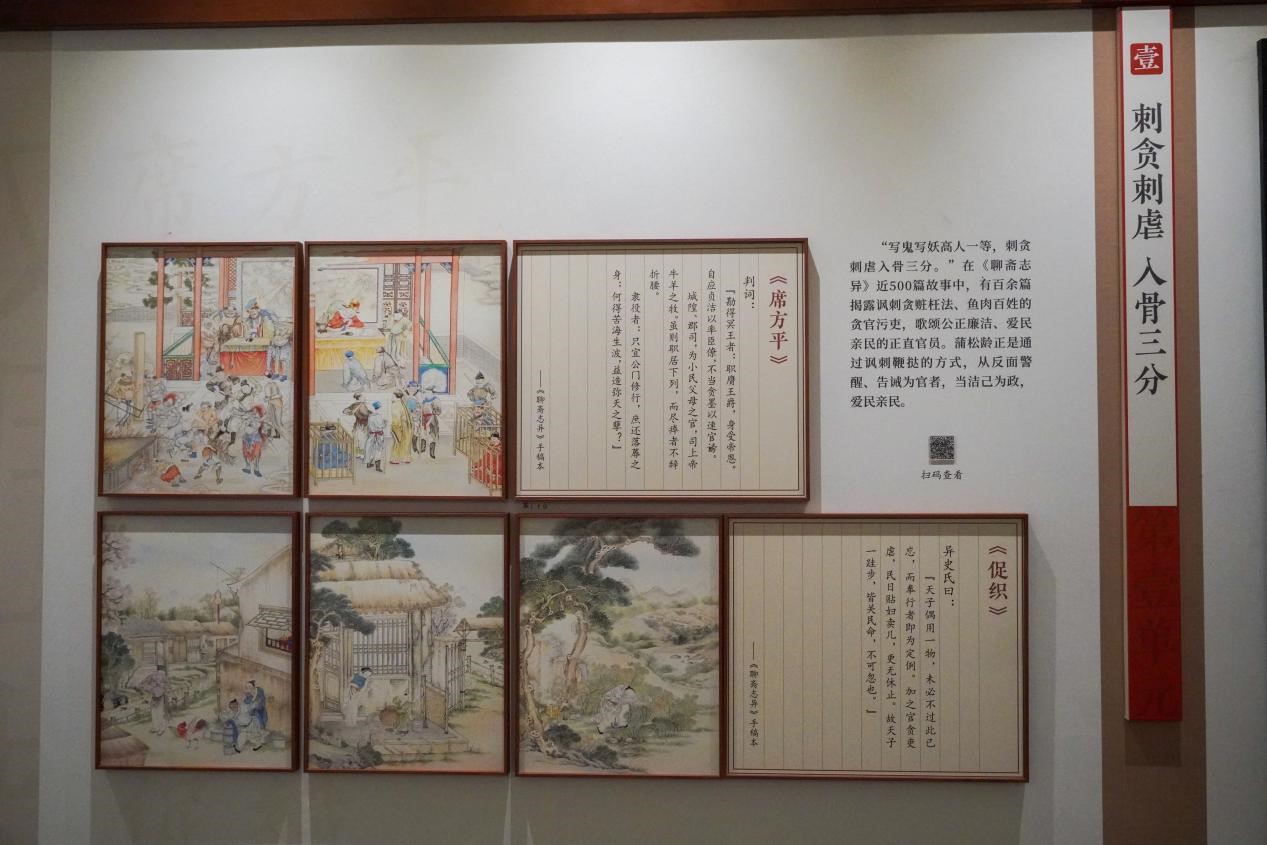 壹
刺贪刺虐 入骨三分
“写鬼写妖高人一等，刺贪
刺虐入骨三分。”在《聊斋志
异》近500篇故事中，有百余篇
揭露讽刺贪赃枉法、鱼肉百姓的
贪官污吏，歌颂公正廉洁、爱民
亲民的正直官员。蒲松龄正是通
过讽刺鞭挞的方式，从反面警
醒、告诫为官者，当洁己为政，
爱民亲民。
扫码查看
席方平
《席方平》
判词：
“勘得冥王者：职膺王爵，身受帝恩。
自应贞洁以率臣僚，不当贪墨以速官谤。
城隍、郡司，为小民父母之官，司上帝
牛羊之牧。虽则职居下列，而尽瘁者不辞
折腰。
隶役者：只宜公门修行，庶还落蓐之
身；何得苦海生波，益造弥天之孽？”
——《聊斋志异》手稿本
《促织》
异史氏曰：
“天子偶用一物，未必不过此已
忘；而奉行者即为定例。加之官贪吏
虐，民日贴妇卖儿，更无休止。故天子
一跬步，皆关民命，不可忽也。”
——《聊斋志异》手稿本